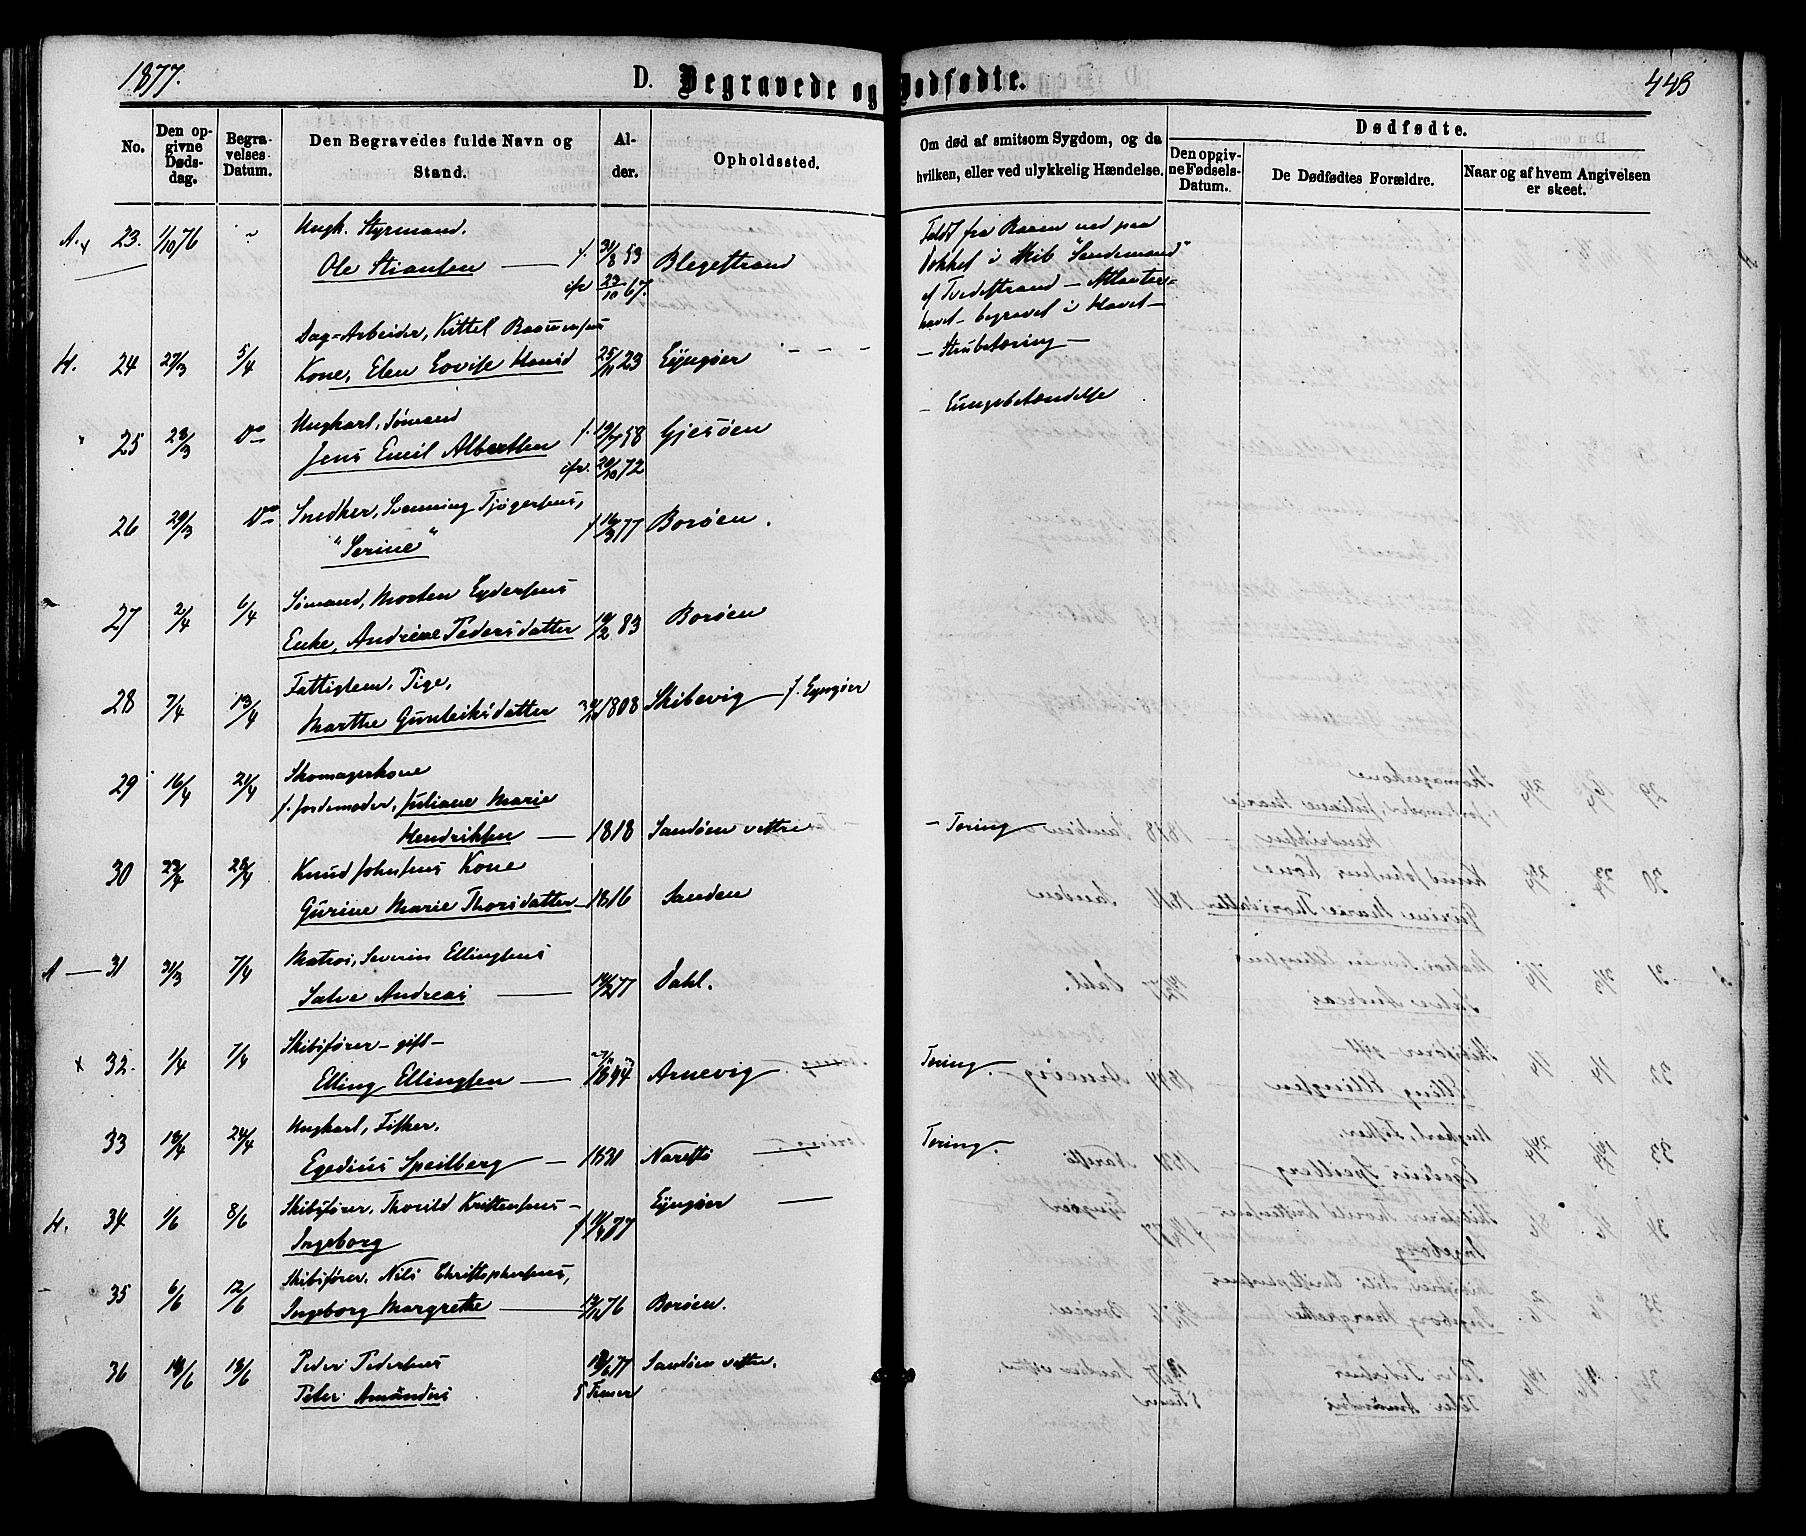 1877.
D. Begravede og Dødfødte.
443
No.
Den opgivne Dødsdag.
Begravelses Datum.
Den Begravedes fulde Navn og Stand.
Alder.
Opholdssted.
Om død af smitsom Sygdom, og da hvilken, eller ved ulykkelig Hændelse.
Dødfødte.
Den opgivne Fødsels-Datum.
De Dødfødtes Forældre.
Naar og af hvem Angivelsen er skeet.
A. x 23. 1/10 76 "
Ungk. Styrmand.
Ole Stiansen — f. 31/8 53 Blegestrand
23/10 67.
Feldt fra Raaen ned paa
Dækket i Skib "Sandemand"
af Tvedestrand — Atlanter-
havet — begravet i Havet —
H. 24 27/3 5/4
Dag-Arbeider, Kittel
Kone, Elen Lovise 25/11 23 Lyngøer - - -
— Strubetæring —
" 25 28/3 Do
Ungkarl, Sømand
Jens Emil Albertsen f. 19/7 58 Gjesøen
20/10 72
— Lungebetændelse
26 29/3 Do
Snedker, Svenning Tjøgersens,
"Serine" f. 16/3 77 Borøen.
27 2/4 6/4
Sømand, Morten Eydersens
Enke, Andrine Pedersdatter 10/2 83 Borøen
28 7/4 13/4
Fattiglem, Pige,
Marthe Gunleiksdatter 1808 Skibevig — f. Lyngøer
29 16/4 21/4
Skomagerkone
f. Jordemoder, Juliane Marie
Hendriksen — 1818 Sandøen vestre
— Tæring —
30 23/4 28/4
Knud Johnsens Kone
Gurine Marie Thorsdatter — 1816 Sanden
A — 31 31/3 7/4
Matros, Severin Ellingsens
Salve Andreas — 14/2 77 Dahl.
x 32. 1/4 7/4
Skibsfører — gift —
Elling Ellingsen — 1844 Arnevig
Tæring.
33 18/4 24/4
Ungkarl, Fisker.
Egedius Speilberg — 1831 Narestö —
Tæring.
H. 34 1/6 8/6
Skibsfører, Thorild Kristensens —
Ingeborg f. 77 Lyngøer —
35 6/6 12/6
Skibsfører, Nils Christophersens,
Ingeborg Margrethe — 76 Borøen.
36 18/6 18/6
Peder Pedersens
Peter Amandus 18/6 77 Sandøen vestre.
5 Timer